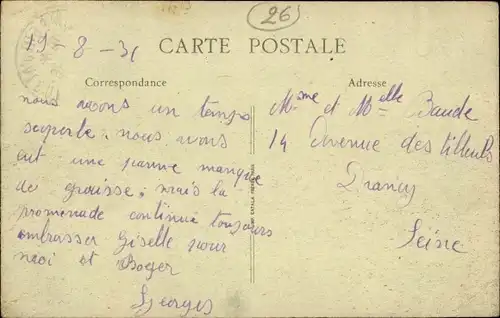 26
19 - 8 - 31
CARTE POSTALE
Correspondance
Adresse
nous avons un temps
superbe. nous avons
eut une panne manque
de graisse, mais la
promenade continue toujours
embrasser Giselle pour
moi et Roger
Georges
Mme et Melle Baude
14 avenue des tilleuls
Drancy
Seine